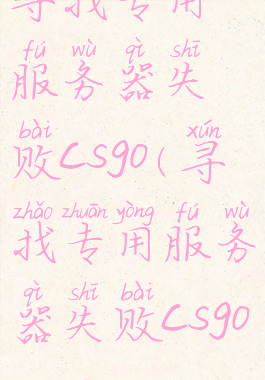 寻找专用
fú wù qì shī
服务器失
bài xún
败CSgo(寻
zhǎo zhuān yòng fú wù
找专用服务
qì shī bài
器失败CSgo